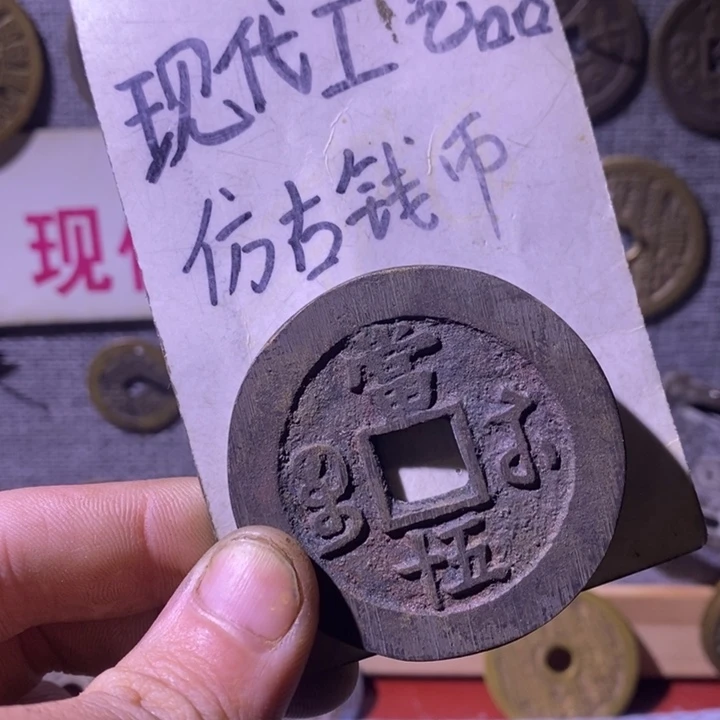 现代工艺品
仿古钱币
现
當
五十